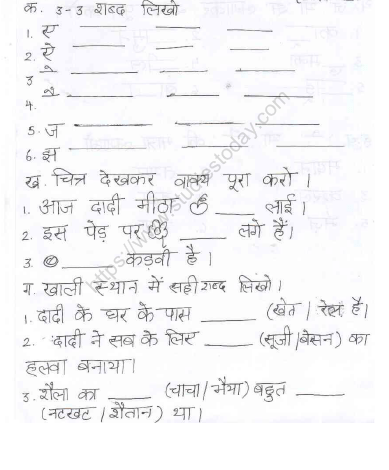 क. 3-3 शब्द लिखो
1. स ____ ____ ____
2. ऐ ____ ____ ____
3 े ____ ____ ____
4. ै ____ ____ ____
5. ज ____ ____
6. झ ____ ____
ख. चित्र देखकर वाक्य पूरा करो।
1. आज दादी मीठा ____ लाई।
2. इस पेड़ पर ____ लगे हैं।
3. ____ कड़वी है।
ग. खाली स्थान में सही शब्द लिखो।
1. दादी के घर के पास ____ (खेत / रेल है।
2. दादी ने सब के लिए ____ (सूजी/बेसन) का
हलवा बनाया।
3. शैला का ____ (चाचा/भैया) बहुत ____
(नटखट / शैतान) था।
https://www.studiestoday.com